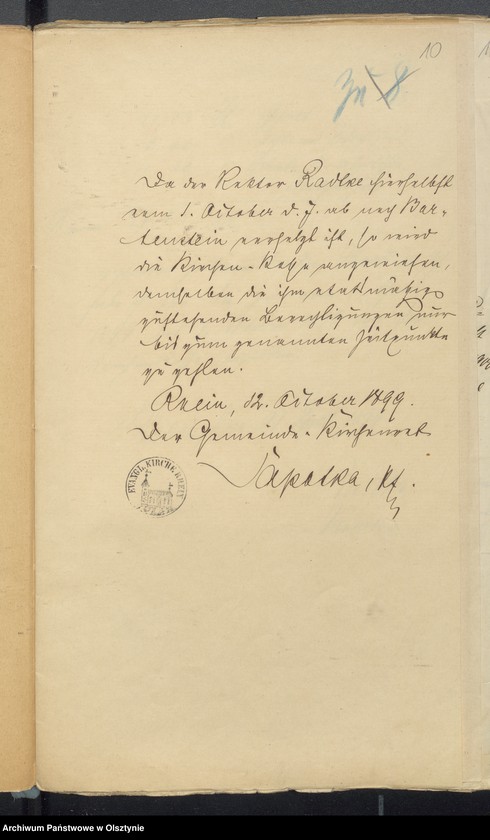 10
zu 8
Da der Rektor Radtke hierselbst
vom 1. October d. J. ab nach Bar-
tenstein versetzt ist, so wird
die Kirchen-Kasse angewiesen,
demselben die ihm etatsmäßig
zustehenden Berechtigungen nur
bis zum genannten Zeitpunkte
zu zahlen.
Rhein, d 2. October 1899.
Der Gemeinde-Kirchenrat
Sapatka, Pf.
EVANGL. KIRCHE RHEIN
Archiwum Państwowe w Olsztynie